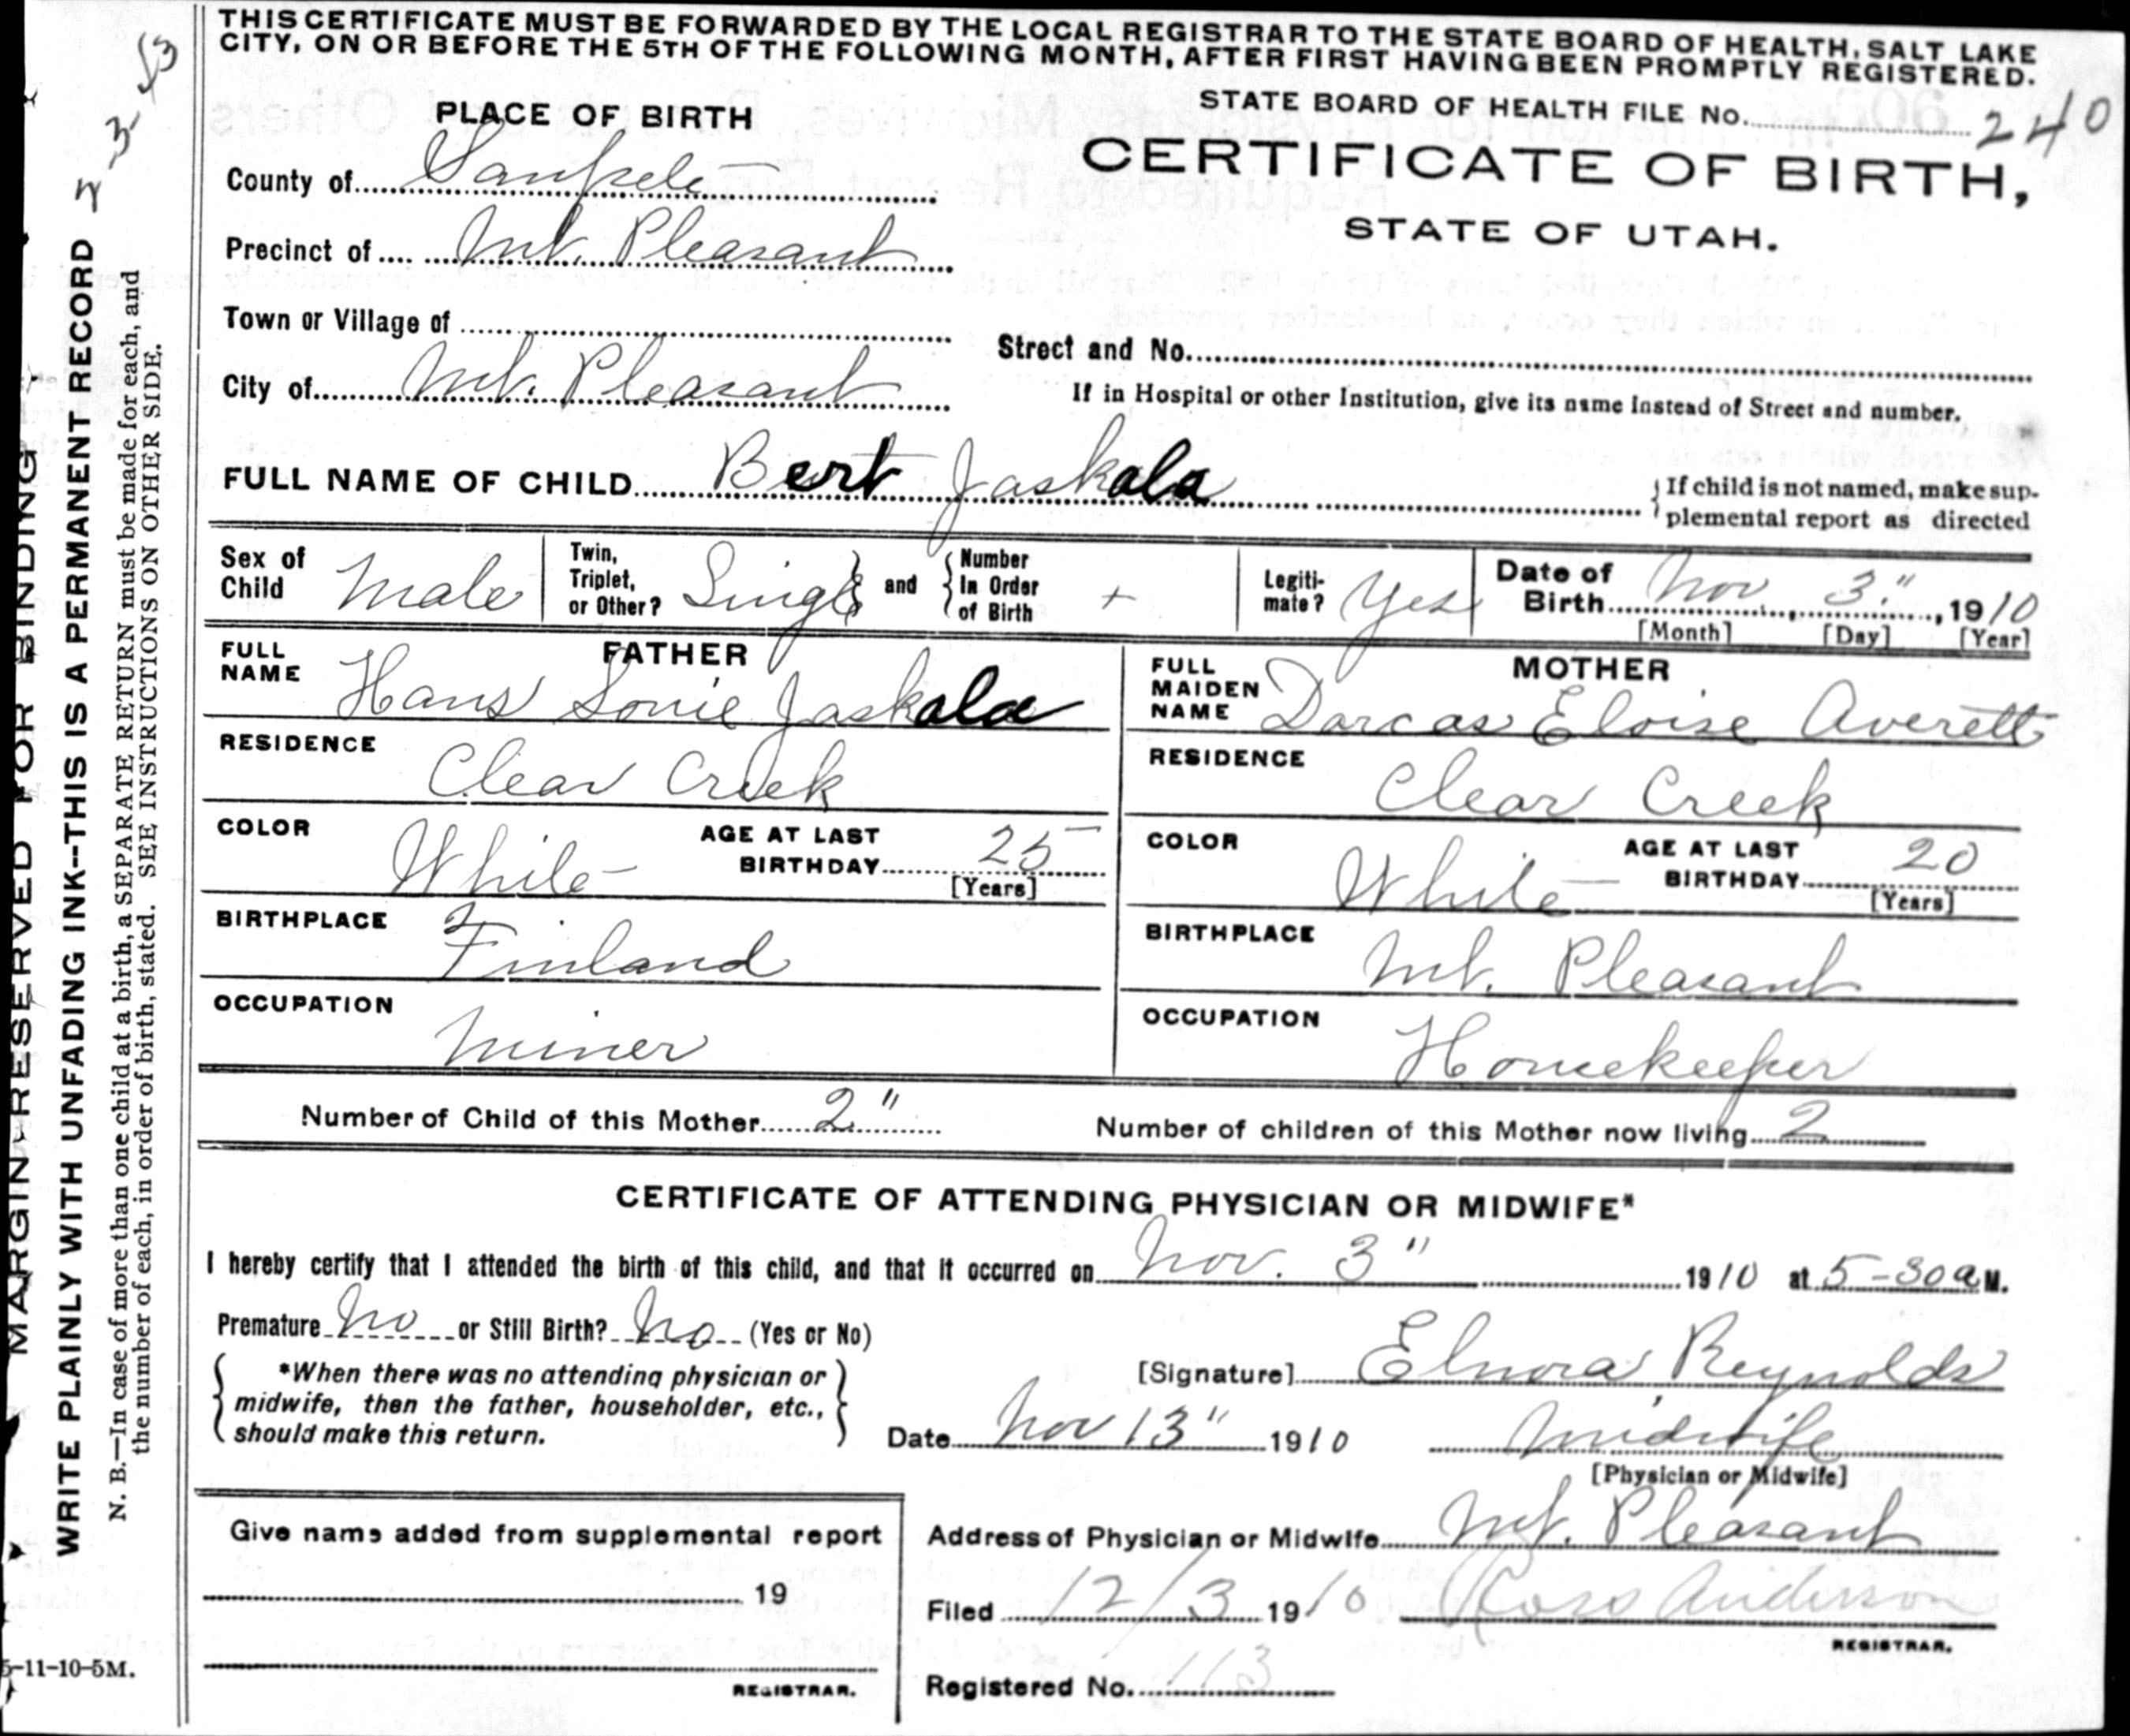 THIS CERTIFICATE MUST BE FORWARDED BY THE LOCAL REGISTRAR TO THE STATE BOARD OF HEALTH, SALT LAKE
CITY, ON OR BEFORE THE 5TH OF THE FOLLOWING MONTH, AFTER FIRST HAVING BEEN PROMPTLY REGISTERED.
STATE BOARD OF HEALTH FILE No. 240
CERTIFICATE OF BIRTH,
STATE OF UTAH.
PLACE OF BIRTH
County of Sanpete
Precinct of Mt. Pleasant
Town or Village of
Street and No.
City of Mt. Pleasant
If in Hospital or other Institution, give its name instead of Street and number.
FULL NAME OF CHILD Bert Jaskala
If child is not named, make sup-
plemental report as directed
Sex of Child Male
Twin, Triplet, or Other? Single and Number In Order of Birth +
Legiti-mate? Yes
Date of Birth Nov 3", 1910
[Month] [Day] [Year]
FATHER
FULL NAME Hans Louie Jaskala
RESIDENCE Clear Creek
COLOR White AGE AT LAST BIRTHDAY 25
[Years]
BIRTHPLACE Finland
OCCUPATION Miner
MOTHER
FULL MAIDEN NAME Dorcas Eloise Averett
RESIDENCE Clear Creek
COLOR White AGE AT LAST BIRTHDAY 20
[Years]
BIRTHPLACE Mt. Pleasant
OCCUPATION Homekeeper
Number of Child of this Mother 2" Number of children of this Mother now living 2
CERTIFICATE OF ATTENDING PHYSICIAN OR MIDWIFE*
I hereby certify that I attended the birth of this child, and that it occurred on Nov. 3" 1910 at 5-30 a M.
Premature No or Still Birth? No (Yes or No)
*When there was no attending physician or
midwife, then the father, householder, etc.,
should make this return.
[Signature] Elnora Reynolds
Date Nov 13" 1910 Midwife
[Physician or Midwife]
Give name added from supplemental report
19
REGISTRAR.
Address of Physician or Midwife Mt. Pleasant
Filed 12/3 1910 Anderson
REGISTRAR.
Registered No. 113
5-11-10-5M.
MARGIN RESERVED FOR BINDING
WRITE PLAINLY WITH UNFADING INK--THIS IS A PERMANENT RECORD
N. B.—In case of more than one child at a birth, a SEPARATE RETURN must be made for each, and
the number of each, in order of birth, stated. SEE INSTRUCTIONS ON OTHER SIDE.